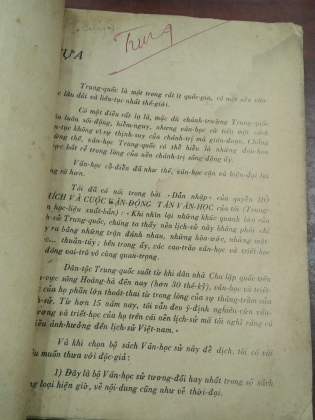 Trung
ỰA
Trung-quốc là một trong rất ít quốc-gia, có một nền văn-
lâu dài và liên-tục nhất thế-giới.
Có một điều rất lạ là, mặc dù chánh-trường Trung-quốc
luôn luôn sôi-động, hiểm-nguy, nhưng văn-học cứ tiến một cách
tục không vì sự thịnh-suy của chánh-trị mà gián-đoạn. Chẳng
thế, văn-học Trung-quốc có thể hiện là những đóa-hoa
bất rễ trong lòng của nền chánh-trị sống-động ấy.
Văn-học cổ-điển đã như thế, văn-học cận và hiện-đại lại
rõ hơn.
Tôi đã có nói trong bài « Dẫn nhập » của quyển HỒ
THÍCH VÀ CUỘC VẬN-ĐỘNG TÂN VĂN-HỌC của tôi (Lửa
học-liệu xuất-bản) : « Khi nhìn lại những khúc quanh lớn của
lịch-sử Trung-quốc, chúng ta thấy nền lịch-sử này không phải chỉ
ra bằng những trận đánh nhau, những hòa-ước, những mật-
ước... thuần-túy ; bên trong ấy, các cao-trào văn-học và triết-học
đóng vai-trò vô cùng quan-trọng.
Dân-tộc Trung-quốc suốt từ khi dân nhà Chu lập quốc trên
vực sông Hoàng-hà đến nay (hơn 30 thế-kỷ), văn-học và triết-
của họ phần lớn thoát-thai từ trong lòng của sự thăng-trầm của
lịch-sử. Từ hơn 15 năm nay, tôi vẫn đeo ý-định nghiên-cứu văn-
và triết-học của họ trên cái nền lịch-sử mà tôi nghĩ rằng có
nhiều ảnh-hưởng đến lịch-sử Việt-nam. »
Và khi chọn bộ sách Văn-học sử này để dịch, tôi có vài
điều muốn thưa với độc-giả :
1) Đây là bộ Văn-học sử tương-đối hay nhất trong số sách
loại hiện giờ, về nội-dung cũng như về thời-đại.